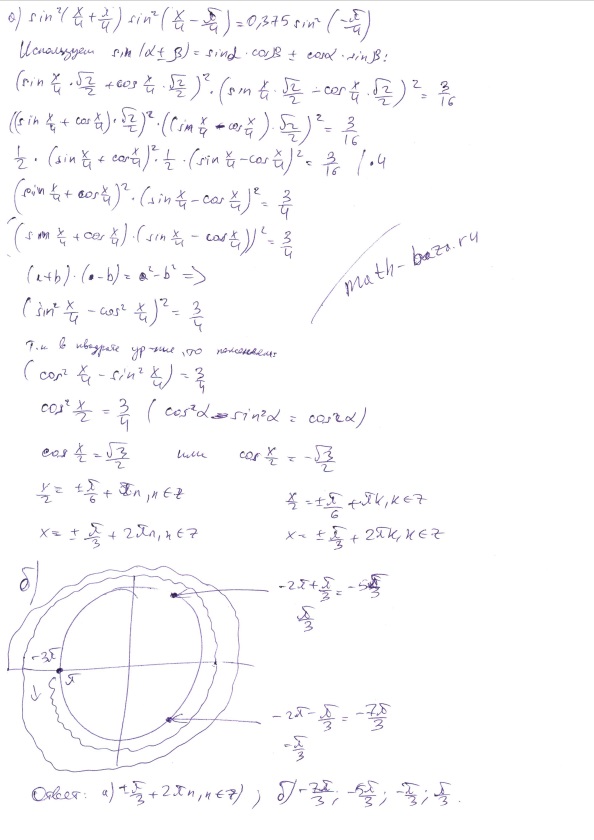 а) sin²(x/4 + π/4) sin²(x/4 − π/4) = 0,375 sin²(−π/4)
Используем sin(α ± β) = sinα · cosβ ± cosα · sinβ:
(sin x/4 · √2/2 + cos x/4 · √2/2)² · (sin x/4 · √2/2 − cos x/4 · √2/2)² = 3/16
((sin x/4 + cos x/4) · √2/2)² · ((sin x/4 − cos x/4) · √2/2)² = 3/16
1/2 · (sin x/4 + cos x/4)² · 1/2 · (sin x/4 − cos x/4)² = 3/16 | · 4
(sin x/4 + cos x/4)² · (sin x/4 − cos x/4)² = 3/4
((sin x/4 + cos x/4) · (sin x/4 − cos x/4))² = 3/4
(a+b) · (a−b) = a² − b² =>
(sin² x/4 − cos² x/4)² = 3/4
math-baza.ru
т.к в квадрате ур-ние, то поменяем:
(cos² x/4 − sin² x/4) = 3/4
cos² x/2 = 3/4 (cos²α − sin²α = cos2α)
cos x/2 = √3/2 или cos x/2 = −√3/2
x/2 = ±π/6 + πn, n ∈ Z x/2 = ±π/6 + πk, k ∈ Z
x = ± π/3 + 2πn, n ∈ Z x = ± π/3 + 2πk, k ∈ Z
б)
−2π + π/3 = −5π/3
π/3
−3π
π
−2π − π/3 = −7π/3
−π/3
Ответ: а) ±π/3 + 2πn, n ∈ Z) ; б) −7π/3 ; −5π/3 ; −π/3 ; π/3 .